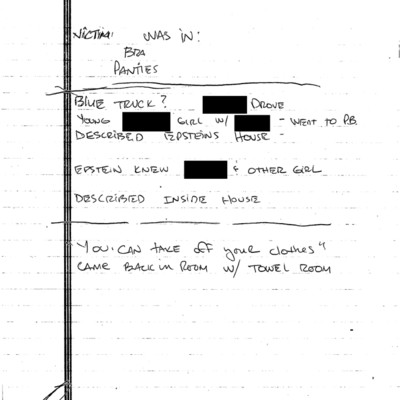 VICTIM: WAS IN:
BRA
PANTIES
BLUE TRUCK? DROVE
YOUNG GIRL W/ - WENT TO P.B.
DESCRIBED EPSTEINS HOUSE -
EPSTEIN KNEW & OTHER GIRL
DESCRIBED INSIDE HOUSE
YOU CAN TAKE OFF YOUR CLOTHES"
CAME BACK IN ROOM W/ TOWEL ROOM